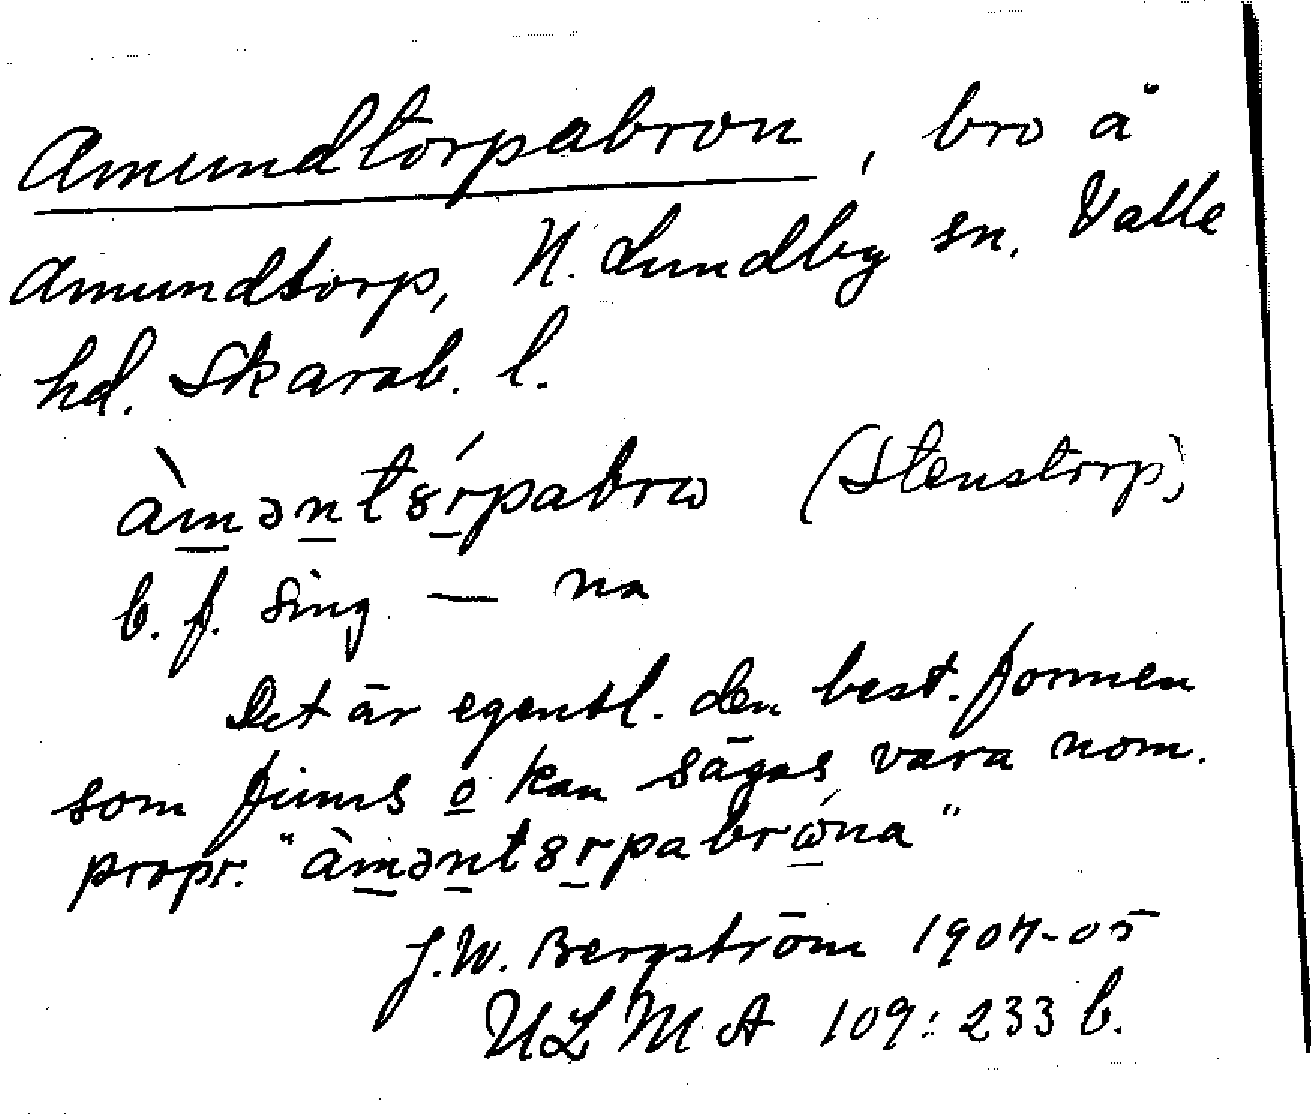 Amundtorpabron, bro å
Amundtorp, N. Lundby sn. Valle
hd. Skarab. l.
àməntȣŕpabrω (Stenstorp)
b. f. sing — na
Det är egentl. den best. formen
som finns o kan sägas vara nom.
propr. "àməntȣrpabrώna"
J.W. Bergström 1904-05
ULMA 109:233 b.